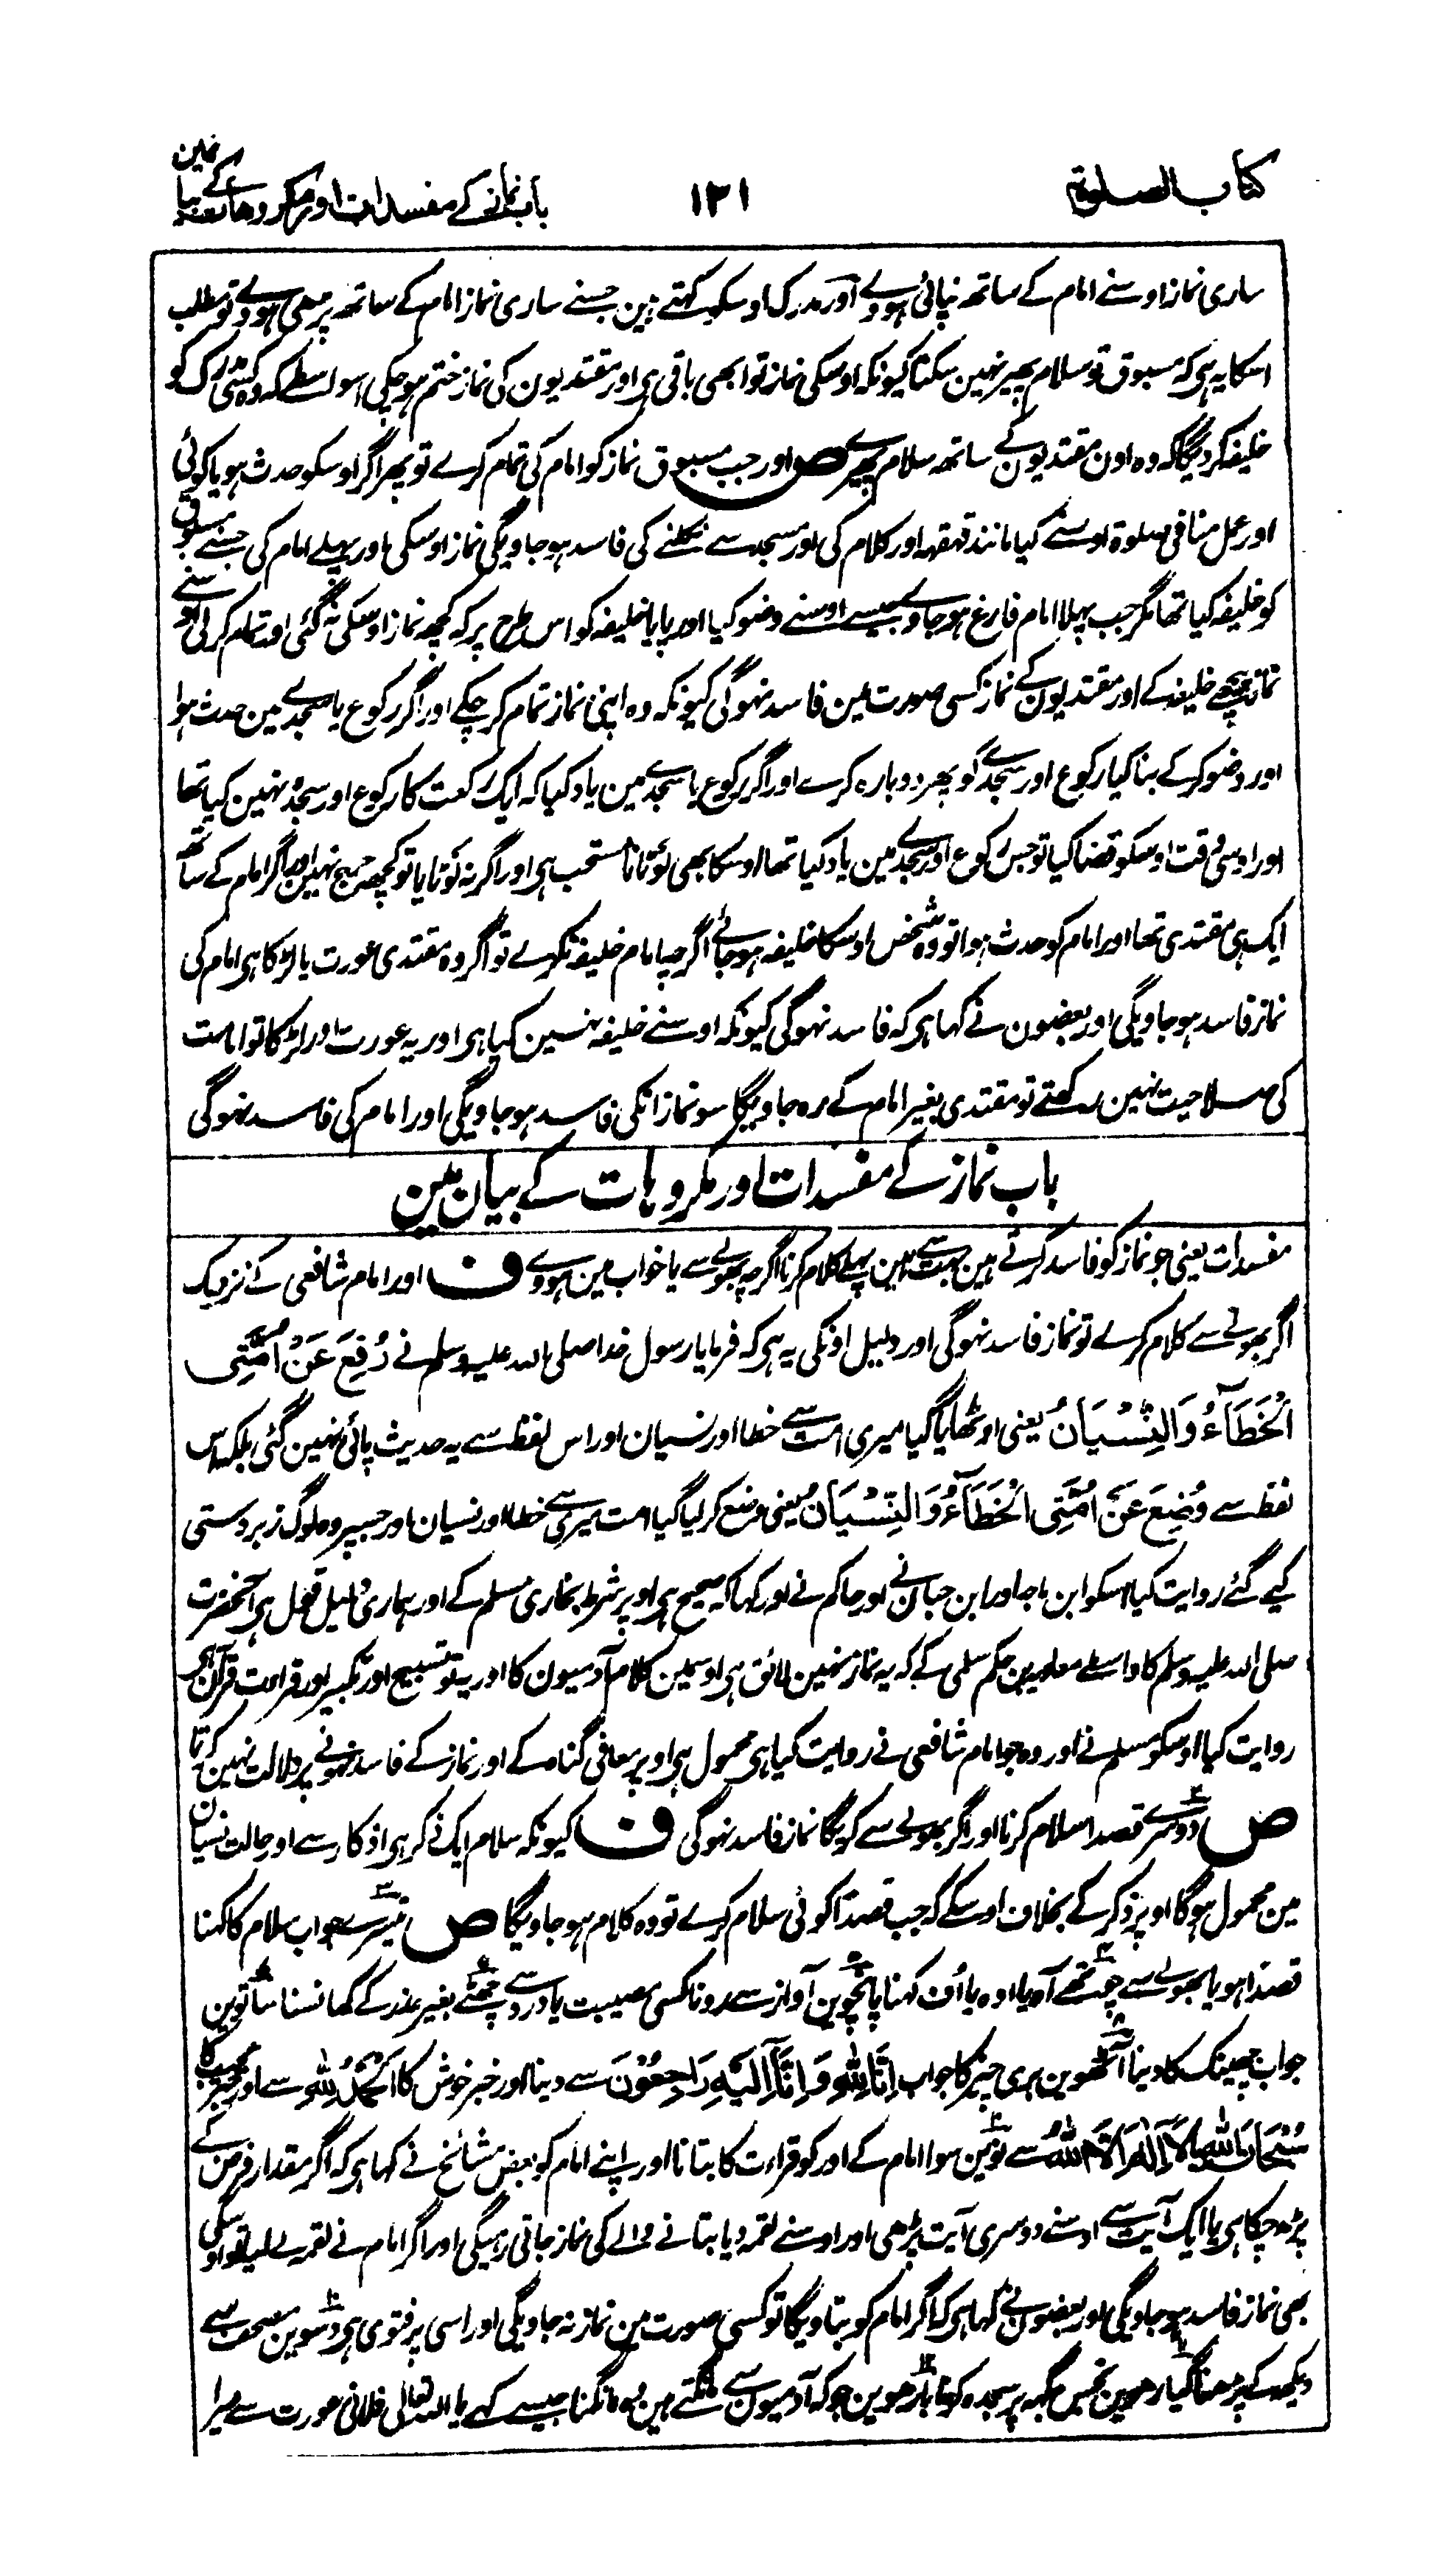 کتاب الصلوة
۱۲۱
باب نماز کے مفسدات اور مکروهات کے بیا نمین
ساری نماز اوسنے امام کے ساتھ نپائی ہووے اور مدرک اوسکو کہتے ہین جسنے ساری نماز امام کے ساتھ پڑھی ہووے تو مطلب
اسکا یہ ہی کہ مسبوق تو سلام پھیر نہین سکتا کیونکہ اوسکی نماز تو ابھی باقی ہی اور مقتدیون کی نماز ختم ہوچکی اسواسطے کہ وہ کسی مدرک کو
خلیفہ کردیگا کہ وہ اون مقتدیون کے ساتھ سلام پھیرے ص اور جب مسبوق نماز کو امام کی تمام کرے تو پھر اگر اوسکو حدث ہو یا کوئی
اور عمل منافی صلوة اوسنے کیا مانند قہقہہ اور کلام کی اور مسجد سے نکلنے کی فاسد ہوجاویگی نماز اوسکی اور پہلے امام کی جسنے مسبوق
کو خلیفہ کیا تھا مگر جب پہلا امام فارغ ہوجاوے جیسے اوسنے وضو کیا اور پایا خلیفہ کو اس طرح پر کہ کچھ نماز اوسکی نہ گئی اور تمام کرلی اوسنے
نماز پیچھے خلیفہ کے اور مقتدیون کے نماز کسی صورت مین فاسد نہوگی کیونکہ وہ اپنی نماز تمام کرچکے اور اگر رکوع یا سجدے مین حدث ہوا
اور وضو کرکے بنا کیا رکوع اور سجدے کو پھر دوبارہ کرے اور اگر رکوع یا سجدے مین یاد کیا کہ ایک رکعت کا رکوع اور سجدہ نہین کیا تھا
اور اوسی وقت اوسکو قضا کیا تو جس رکوع اور سجدے مین یاد کیا تھا اوسکا بھی لوٹانا مستحب ہی اور اگر نہ لوٹایا تو کچھ حرج نہین اور اگر امام کے ساتھ
ایک ہی مقتدی تھا اور امام کو حدث ہوا تو وہ شخص اوسکا خلیفہ ہوجائے اگرچہ امام خلیفہ نکرے تو اگر وہ مقتدی عورت یا لڑکا ہی امام کی
نماز فاسد ہوجاویگی اور بعضون نے کہا ہی کہ فاسد نہوگی کیونکہ اوسنے خلیفہ نہین کیا ہی اور یہ عورت اور لڑکا تو امامت
کی صلاحیت نہین رکھتے تو مقتدی بغیر امام کے رہ جاویگا سو نماز انکی فاسد ہوجاویگی اور امام کی فاسد نہوگی
باب نماز کے مفسدات اور مکروہات کے بیان مین
مفسدات یعنی جو نماز کو فاسد کرتے ہین بہت سے ہین پہلے کلام کرنا اگرچہ بھولے سے یا خواب مین ہووے ف اور امام شافعی کے نزدیک
اگر بھولے سے کلام کرے تو نماز فاسد نہوگی اور دلیل اونکی یہ ہی کہ فرمایا رسول خدا صلی اللہ علیہ وسلم نے رُفِعَ عَنْ اُمَّتِی
الْخَطَآءُ وَالنِّسْیَانُ یعنی اوٹھایا گیا میری امت سے خطا اور نسیان اور اس لفظ سے یہ حدیث پائی نہین گئی بلکہ اس
لفظ سے وُضِعَ عَنْ اُمَّتِی الْخَطَآءُ وَالنِّسْیَانُ یعنی وضع کرلیا گیا امت میری سے خطا اور نسیان اور جسپر وہ لوگ زبردستی
کیے گئے روایت کیا اسکو ابن ماجہ اور ابن حبان نے اور حاکم نے اور کہا کہ صحیح ہی اوپر شرط بخاری مسلم کے اور ہماری دلیل قول ہی آنحضرت
صلی اللہ علیہ وسلم کا واسطے معاویہ بن حکم سلمی کے کہ یہ نماز نہین لائق ہی اوسمین کلام آدمیون کا اور یہ تو تسبیح اور تکبیر اور قراءت قرآن ہی
روایت کیا اوسکو مسلم نے اور وہ جو امام شافعی نے روایت کیا ہی محمول ہی اوپر معافی گناہ کے اور نماز کے فاسد نہونے پر دلالت نہین کرتا
ص دوسرے قصدا سلام کرنا اور اگر بھولے سے کریگا نماز فاسد نہوگی ف کیونکہ سلام ایک ذکر ہی اذکار سے اور حالت نسیان
مین محمول ہوگا اوپر ذکر کے بخلاف اوسکے کہ جب قصداً کوئی سلام کرے تو وہ کلام ہوجاویگا ص تیسرے جواب سلام کا کہنا
قصداً ہو یا بھولے سے چوتھے آہ یا اوہ یا اُف کہنا پانچوین آواز سے رونا کسی مصیبت یا درد سے چھٹے بغیر عذر کے کھانسنا ساتوین
جواب چھینک کا دینا آٹھوین بری خبر کا جواب اِنَّا لِلّٰهِ وَاِنَّآ اِلَیْهِ رَاجِعُوْنَ سے دینا اور خبر خوش کا اَلْحَمْدُ لِلّٰهِ سے اور عجیب کا
سُبْحَانَ اللّٰهِ یا لَآ اِلٰهَ اِلَّا اللّٰهُ سے نوین سوا امام کے اور کو قراءت کا بتانا اور اپنے امام کو بعض مشائخ نے کہا ہی کہ اگر مقدار فرض کے
پڑھ چکا ہی یا ایک آیت سے اوسنے دوسری آیت پڑھی اور اوسنے لقمہ دیا بتانے والے کی نماز جاتی رہیگی اور اگر امام نے لقمہ لے لیا تو اوسکی
بھی نماز فاسد ہوجاویگی اور بعضون نے کہا ہی کہ اگر امام کو بتاویگا تو کسی صورت مین نماز نہ جاویگی اور اسی پر فتوی ہی دسوین مصحف سے
دیکھ کے پڑھنا گیارھوین نجس جگہ پر سجدہ کرنا بارھوین جو کہ آدمیون سے مانگتے ہین وہ مانگنا جیسے کہے یا اللہ تعالی فلانی عورت سے میرا